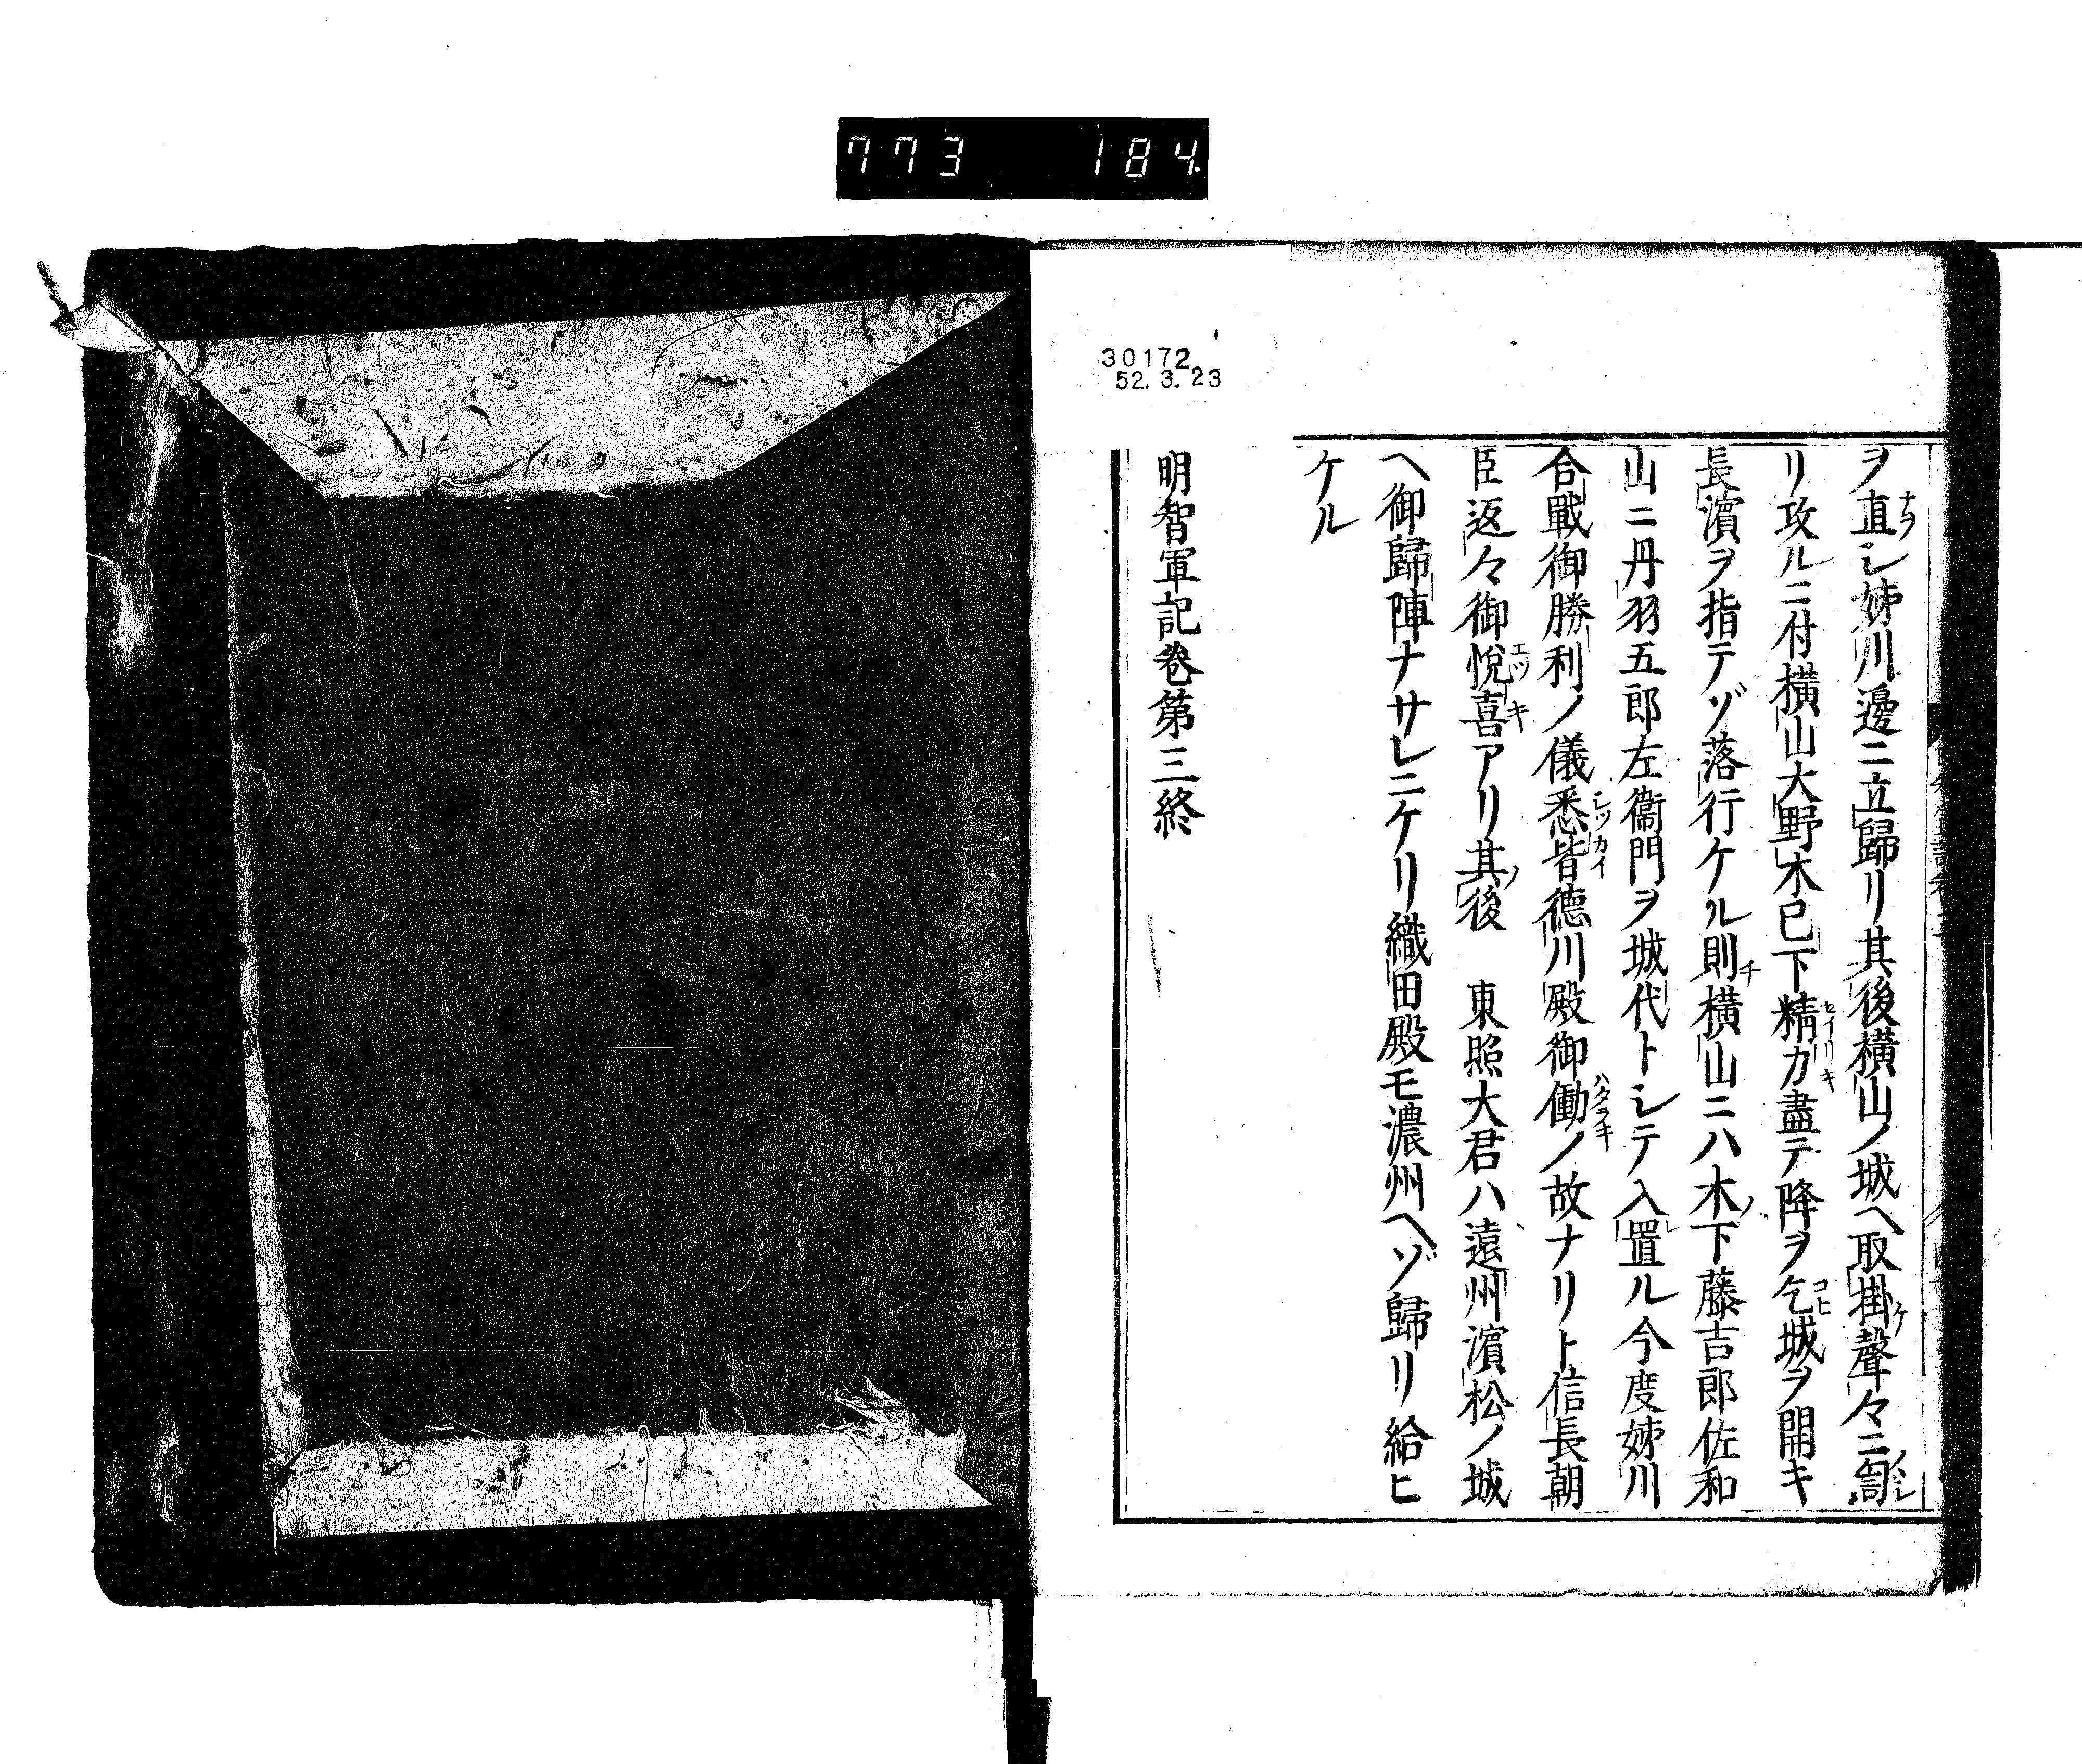 773 184
30172
52.3.23
ヲ直シ姊川邊ニ立歸リ其後橫山ノ城ヘ取掛聲々ニ訇
リ攻ルニ付橫山大野木已下精力盡テ降ヲ乞城ヲ開キ
長濱ヲ指テゾ落行ケル則橫山ニハ木下藤吉郎佐和
山ニ丹羽五郎左衞門ヲ城代トシテ入置ル今度姊川
合戰御勝利ノ儀悉皆德川殿御働ノ故ナリト信長朝
臣返々御悅喜アリ其後　東照大君ハ遠州濱松ノ城
ヘ御歸陣ナサレニケリ織田殿モ濃州ヘゾ歸リ給ヒ
ケル
明智軍記卷第三終